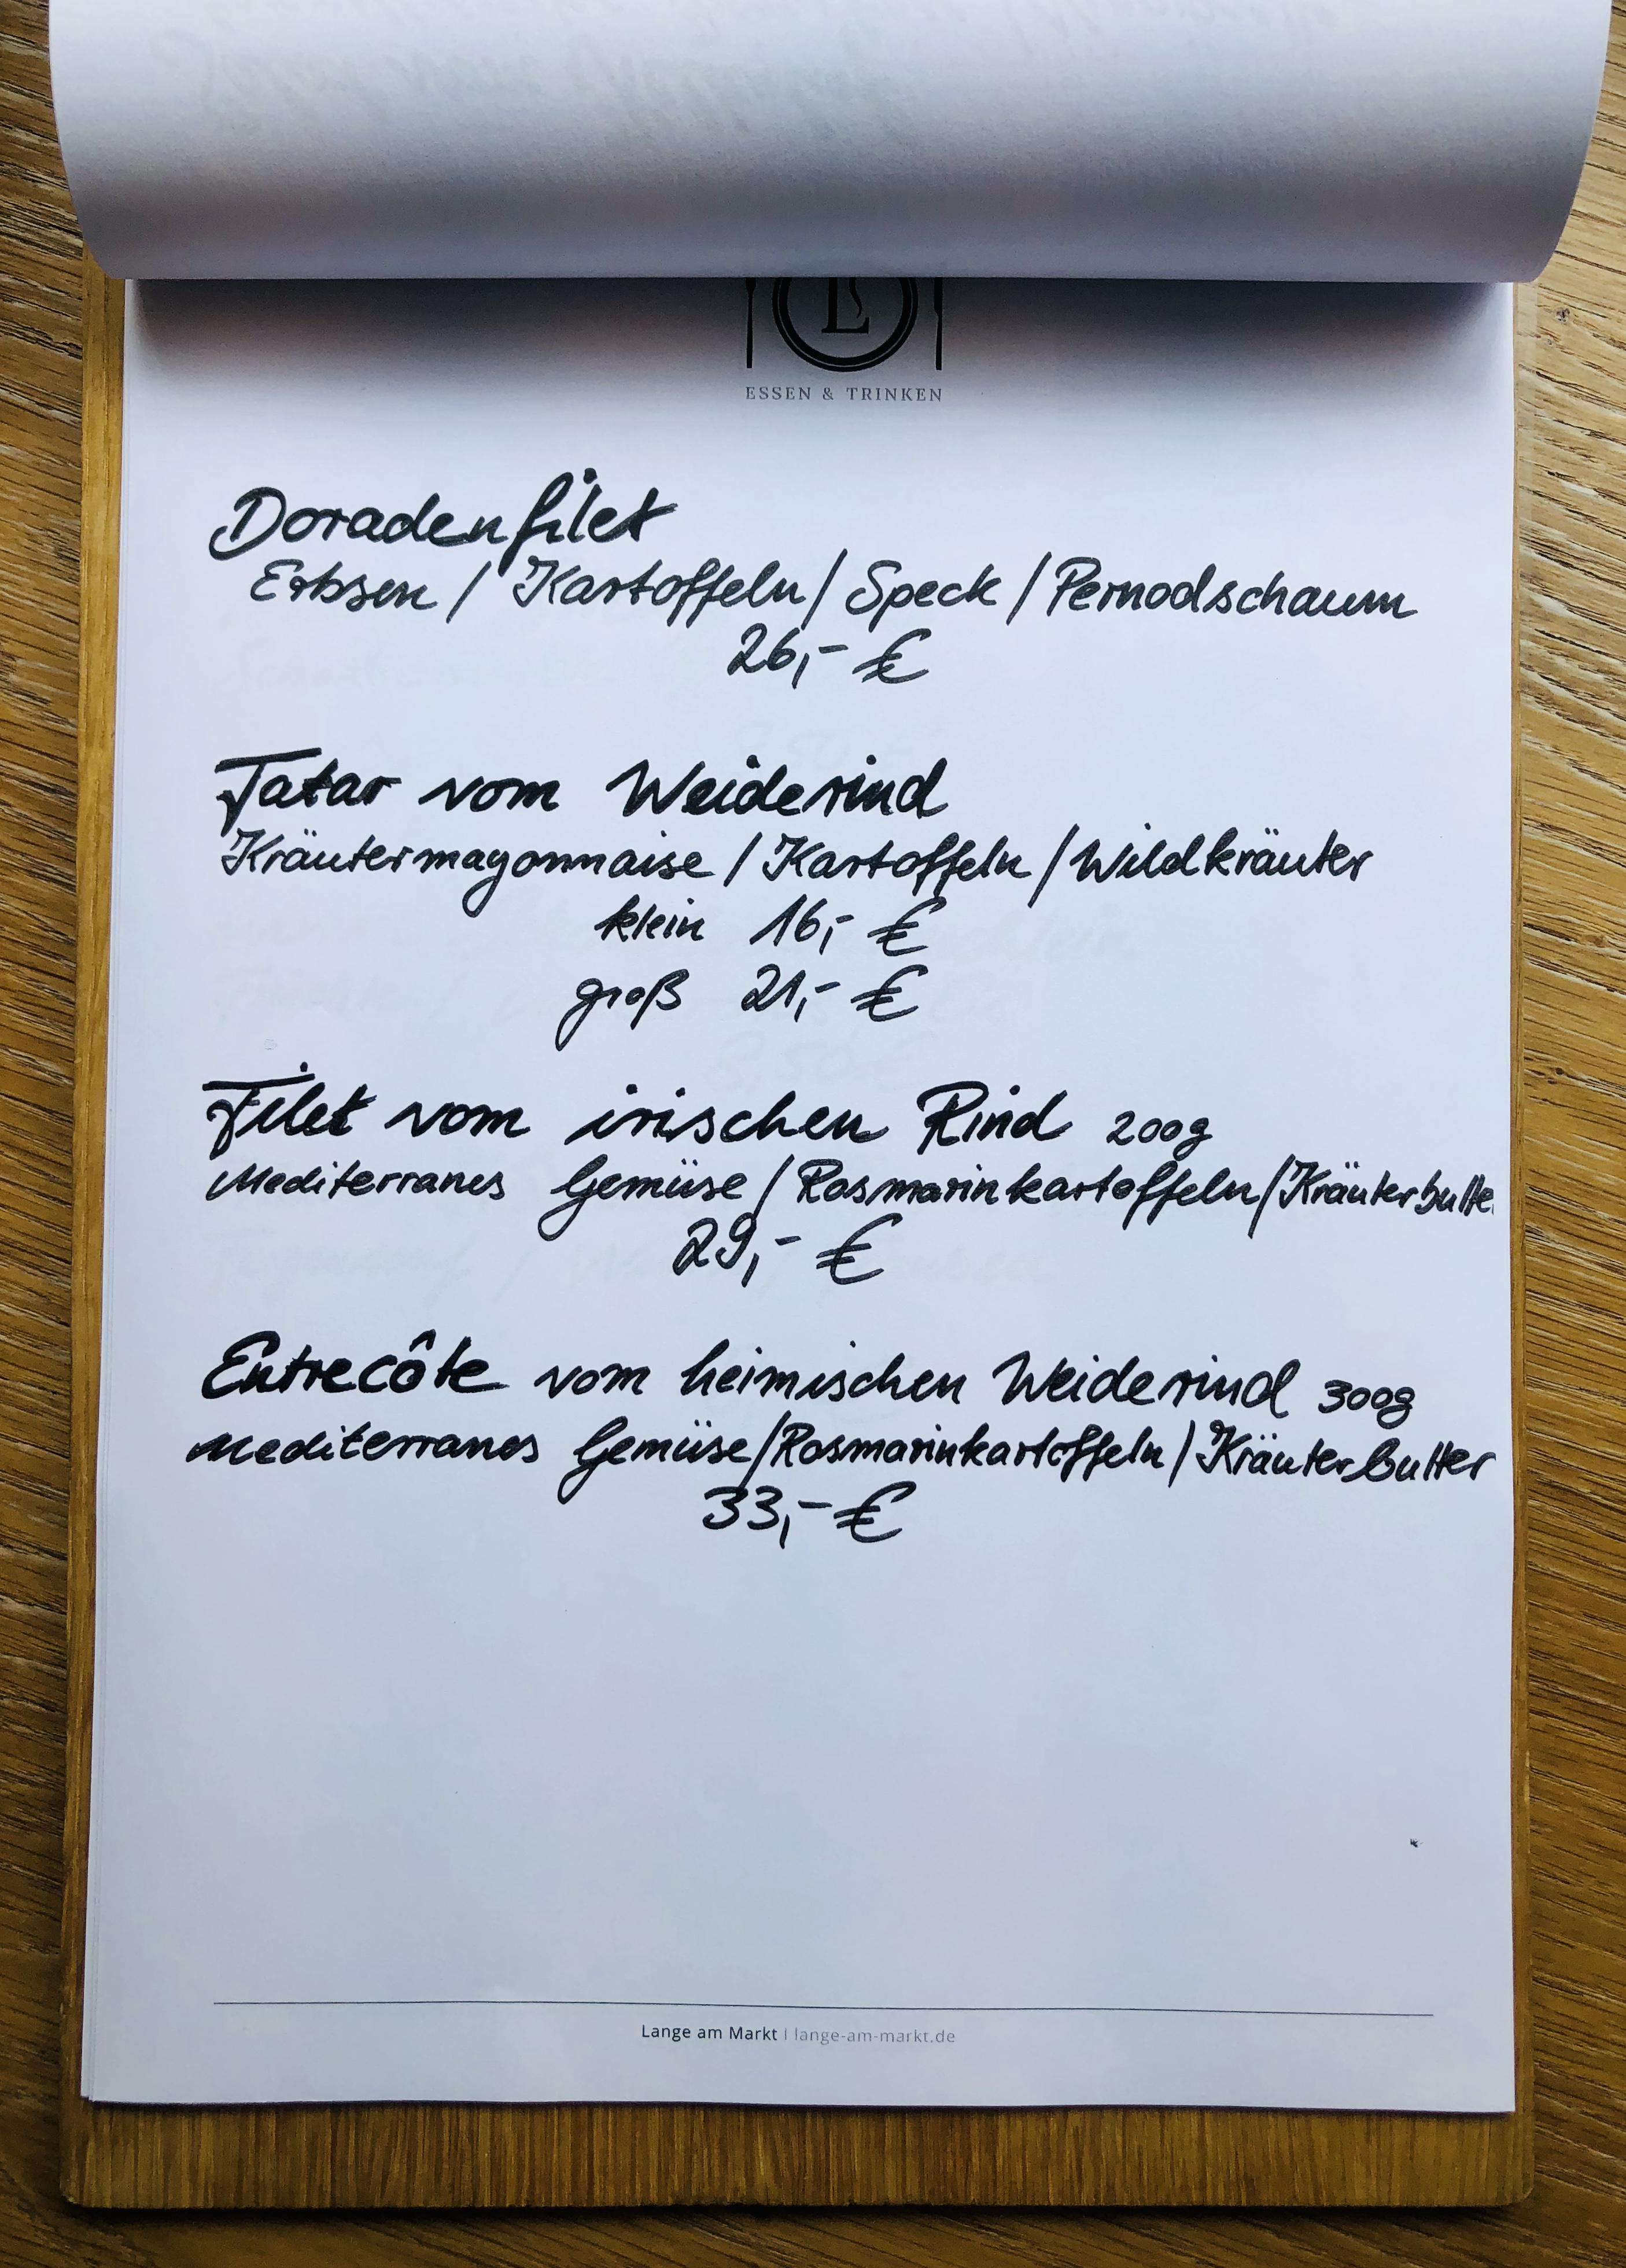 L
ESSEN & TRINKEN
Doradenfilet
Erbsen / Kartoffeln / Speck / Pernodschaum
26,- €
Tatar vom Weiderind
Kräutermayonnaise / Kartoffeln / Wildkräuter
klein 16,- €
groß 21,- €
Filet vom irischen Rind 200g
Mediterranes Gemüse / Rosmarinkartoffeln / Kräuterbutte
29,- €
Entrecôte vom heimischen Weiderind 300g
Mediterranes Gemüse / Rosmarinkartoffeln / Kräuterbutter
33,- €
Lange am Markt | lange-am-markt.de